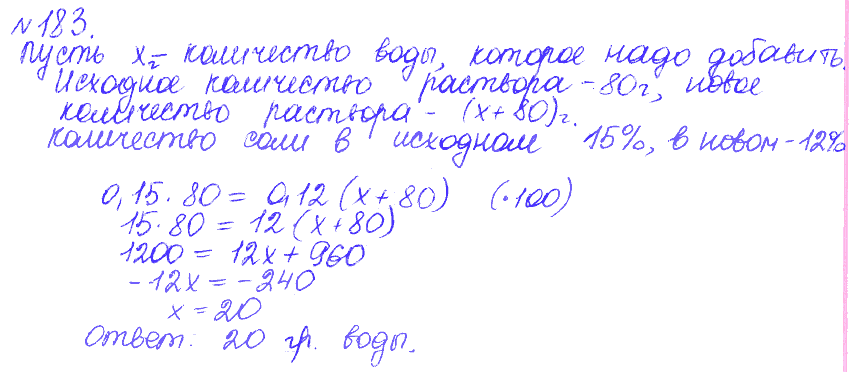 №183.
Пусть x г - количество воды, которое надо добавить.
Исходное количество раствора - 80г, новое
количество раствора - (x+80)г.
Количество соли в исходном 15%, в новом - 12%
0,15·80 = 0,12(x+80) (·100)
15·80 = 12(x+80)
1200 = 12x+960
-12x = -240
x = 20
Ответ: 20 гр. воды.